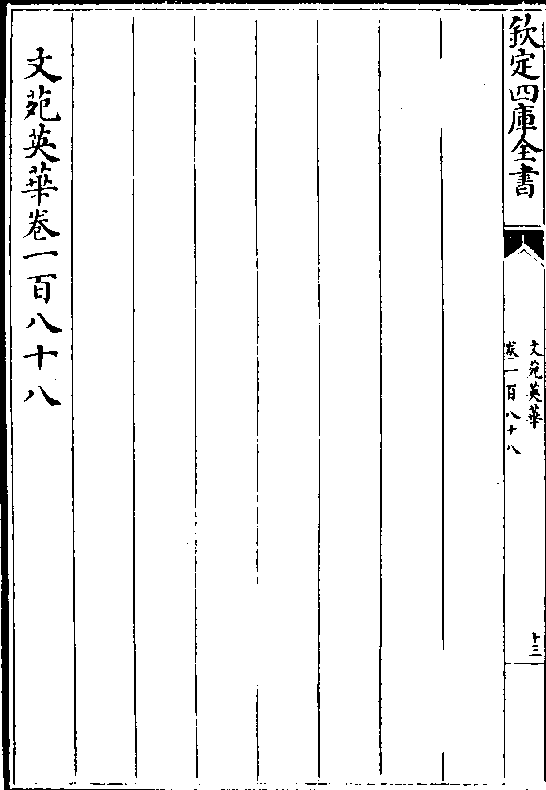 欽定四庫全書
文苑英華
卷一百八十八
十三
文苑英華卷一百八十八